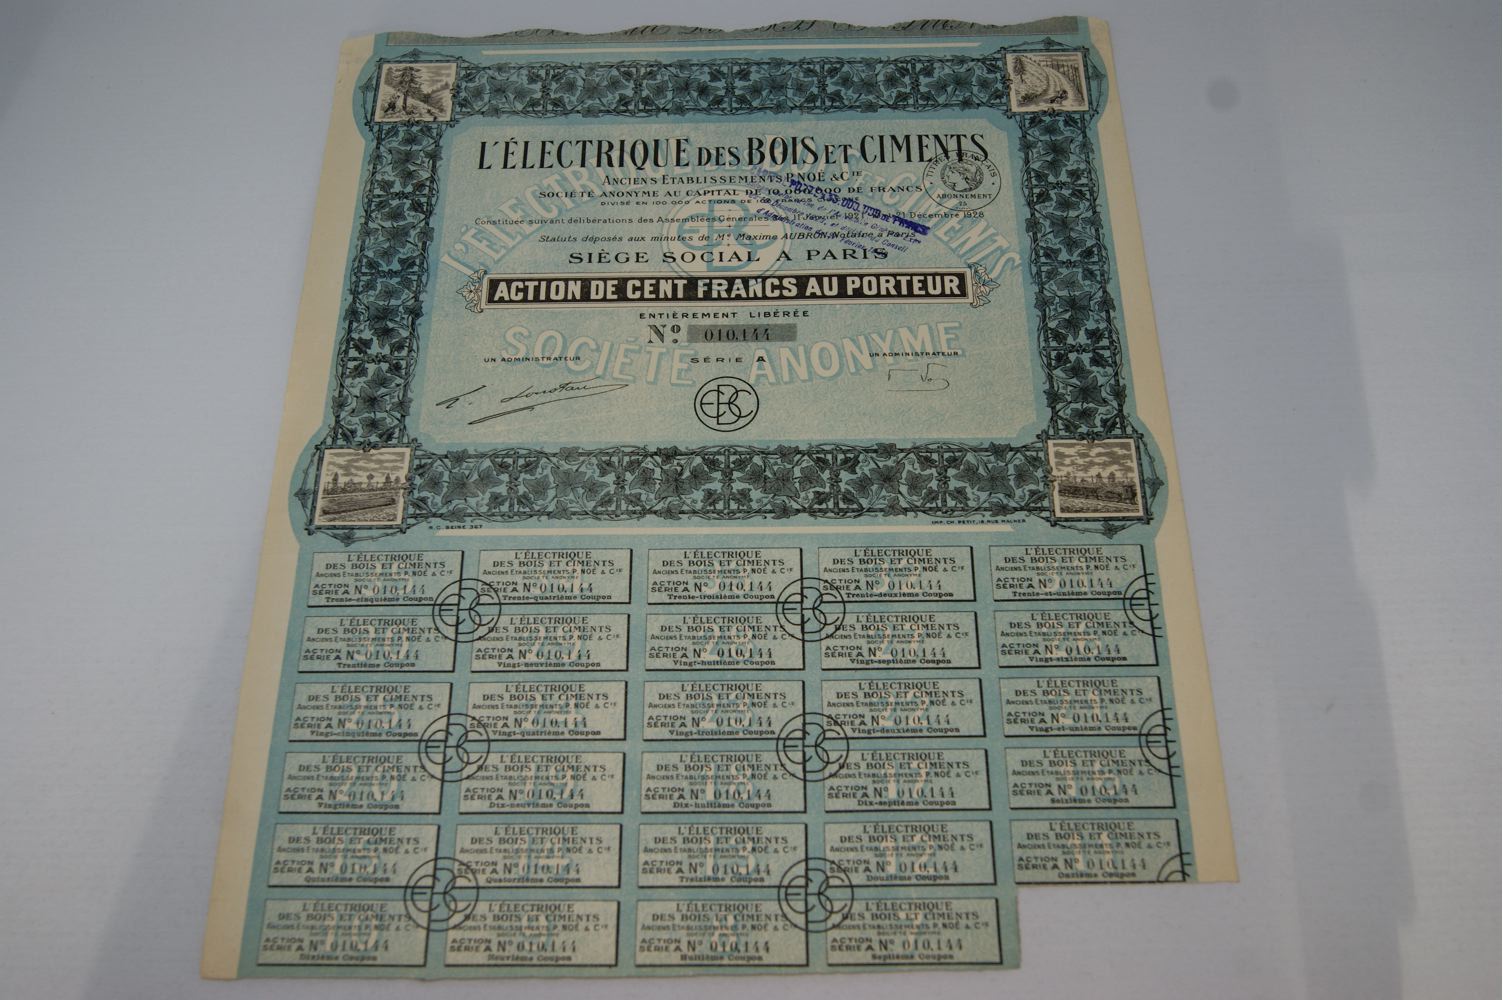 L'ÉLECTRIQUE DES BOIS ET CIMENTS
ANCIENS ETABLISSEMENTS P. NOË & CIE
SOCIÉTÉ ANONYME AU CAPITAL DE 10.000.000 DE FRANCS
DIVISÉ EN 100.000 ACTIONS DE 100 FRANCS
TITRES FRANÇAIS
ABONNEMENT
Constituée suivant délibérations des Assemblées Générales des
1921
21 Décembre 1928
Statuts déposés aux minutes de Me Maxime AUBRON, Notaire à Paris
SIÈGE SOCIAL A PARIS
ACTION DE CENT FRANCS AU PORTEUR
ENTIÈREMENT LIBÉRÉE
No. 010,144
SÉRIE A
UN ADMINISTRATEUR
UN ADMINISTRATEUR
SOCIÉTÉ ANONYME
EBC
R.C. SEINE 367
IMP. CH. PETIT, 18, RUE MALHER
L'ÉLECTRIQUE DES BOIS ET CIMENTS
ANCIENS ETABLISSEMENTS P. NOË & CIE
SOCIÉTÉ ANONYME
ACTION SÉRIE A No 010,144
Trente-cinquième Coupon
L'ÉLECTRIQUE DES BOIS ET CIMENTS
ANCIENS ETABLISSEMENTS P. NOË & CIE
SOCIÉTÉ ANONYME
ACTION SÉRIE A No 010,144
Trente-quatrième Coupon
L'ÉLECTRIQUE DES BOIS ET CIMENTS
ANCIENS ETABLISSEMENTS P. NOË & CIE
SOCIÉTÉ ANONYME
ACTION SÉRIE A No 010,144
Trente-troisième Coupon
L'ÉLECTRIQUE DES BOIS ET CIMENTS
ANCIENS ETABLISSEMENTS P. NOË & CIE
SOCIÉTÉ ANONYME
ACTION SÉRIE A No 010,144
Trente-deuxième Coupon
L'ÉLECTRIQUE DES BOIS ET CIMENTS
ANCIENS ETABLISSEMENTS P. NOË & CIE
SOCIÉTÉ ANONYME
ACTION SÉRIE A No 010,144
Trente-et-unième Coupon
L'ÉLECTRIQUE DES BOIS ET CIMENTS
ANCIENS ETABLISSEMENTS P. NOË & CIE
SOCIÉTÉ ANONYME
ACTION SÉRIE A No 010,144
Trentième Coupon
L'ÉLECTRIQUE DES BOIS ET CIMENTS
ANCIENS ETABLISSEMENTS P. NOË & CIE
SOCIÉTÉ ANONYME
ACTION SÉRIE A No 010,144
Vingt-neuvième Coupon
L'ÉLECTRIQUE DES BOIS ET CIMENTS
ANCIENS ETABLISSEMENTS P. NOË & CIE
SOCIÉTÉ ANONYME
ACTION SÉRIE A No 010,144
Vingt-huitième Coupon
L'ÉLECTRIQUE DES BOIS ET CIMENTS
ANCIENS ETABLISSEMENTS P. NOË & CIE
SOCIÉTÉ ANONYME
ACTION SÉRIE A No 010,144
Vingt-septième Coupon
L'ÉLECTRIQUE DES BOIS ET CIMENTS
ANCIENS ETABLISSEMENTS P. NOË & CIE
SOCIÉTÉ ANONYME
ACTION SÉRIE A No 010,144
Vingt-sixième Coupon
L'ÉLECTRIQUE DES BOIS ET CIMENTS
ANCIENS ETABLISSEMENTS P. NOË & CIE
SOCIÉTÉ ANONYME
ACTION SÉRIE A No 010,144
Vingt-cinquième Coupon
L'ÉLECTRIQUE DES BOIS ET CIMENTS
ANCIENS ETABLISSEMENTS P. NOË & CIE
SOCIÉTÉ ANONYME
ACTION SÉRIE A No 010,144
Vingt-quatrième Coupon
L'ÉLECTRIQUE DES BOIS ET CIMENTS
ANCIENS ETABLISSEMENTS P. NOË & CIE
SOCIÉTÉ ANONYME
ACTION SÉRIE A No 010,144
Vingt-troisième Coupon
L'ÉLECTRIQUE DES BOIS ET CIMENTS
ANCIENS ETABLISSEMENTS P. NOË & CIE
SOCIÉTÉ ANONYME
ACTION SÉRIE A No 010,144
Vingt-deuxième Coupon
L'ÉLECTRIQUE DES BOIS ET CIMENTS
ANCIENS ETABLISSEMENTS P. NOË & CIE
SOCIÉTÉ ANONYME
ACTION SÉRIE A No 010,144
Vingt-et-unième Coupon
L'ÉLECTRIQUE DES BOIS ET CIMENTS
ANCIENS ETABLISSEMENTS P. NOË & CIE
SOCIÉTÉ ANONYME
ACTION SÉRIE A No 010,144
Vingtième Coupon
L'ÉLECTRIQUE DES BOIS ET CIMENTS
ANCIENS ETABLISSEMENTS P. NOË & CIE
SOCIÉTÉ ANONYME
ACTION SÉRIE A No 010,144
Dix-neuvième Coupon
L'ÉLECTRIQUE DES BOIS ET CIMENTS
ANCIENS ETABLISSEMENTS P. NOË & CIE
SOCIÉTÉ ANONYME
ACTION SÉRIE A No 010,144
Dix-huitième Coupon
L'ÉLECTRIQUE DES BOIS ET CIMENTS
ANCIENS ETABLISSEMENTS P. NOË & CIE
SOCIÉTÉ ANONYME
ACTION SÉRIE A No 010,144
Dix-septième Coupon
L'ÉLECTRIQUE DES BOIS ET CIMENTS
ANCIENS ETABLISSEMENTS P. NOË & CIE
SOCIÉTÉ ANONYME
ACTION SÉRIE A No 010,144
Seizième Coupon
L'ÉLECTRIQUE DES BOIS ET CIMENTS
ANCIENS ETABLISSEMENTS P. NOË & CIE
SOCIÉTÉ ANONYME
ACTION SÉRIE A No 010,144
Quinzième Coupon
L'ÉLECTRIQUE DES BOIS ET CIMENTS
ANCIENS ETABLISSEMENTS P. NOË & CIE
SOCIÉTÉ ANONYME
ACTION SÉRIE A No 010,144
Quatorzième Coupon
L'ÉLECTRIQUE DES BOIS ET CIMENTS
ANCIENS ETABLISSEMENTS P. NOË & CIE
SOCIÉTÉ ANONYME
ACTION SÉRIE A No 010,144
Treizième Coupon
L'ÉLECTRIQUE DES BOIS ET CIMENTS
ANCIENS ETABLISSEMENTS P. NOË & CIE
SOCIÉTÉ ANONYME
ACTION SÉRIE A No 010,144
Douzième Coupon
L'ÉLECTRIQUE DES BOIS ET CIMENTS
ANCIENS ETABLISSEMENTS P. NOË & CIE
SOCIÉTÉ ANONYME
ACTION SÉRIE A No 010,144
Onzième Coupon
L'ÉLECTRIQUE DES BOIS ET CIMENTS
ANCIENS ETABLISSEMENTS P. NOË & CIE
SOCIÉTÉ ANONYME
ACTION SÉRIE A No 010,144
Dixième Coupon
L'ÉLECTRIQUE DES BOIS ET CIMENTS
ANCIENS ETABLISSEMENTS P. NOË & CIE
SOCIÉTÉ ANONYME
ACTION SÉRIE A No 010,144
Neuvième Coupon
L'ÉLECTRIQUE DES BOIS ET CIMENTS
ANCIENS ETABLISSEMENTS P. NOË & CIE
SOCIÉTÉ ANONYME
ACTION SÉRIE A No 010,144
Huitième Coupon
L'ÉLECTRIQUE DES BOIS ET CIMENTS
ANCIENS ETABLISSEMENTS P. NOË & CIE
SOCIÉTÉ ANONYME
ACTION SÉRIE A No 010,144
Septième Coupon